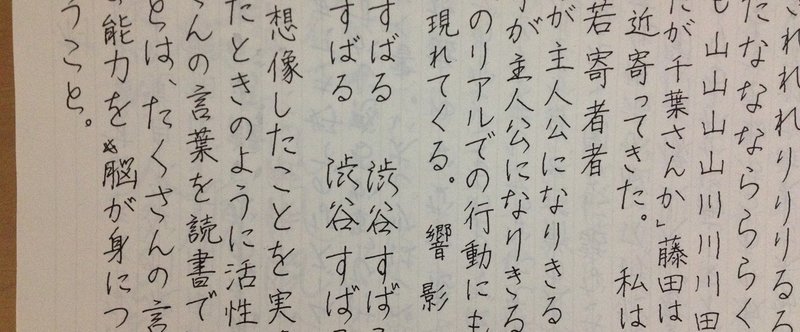 されれれりりりるる
たなななららららく
も山山山山川川川田
たが千葉さんか」藤田は
近寄ってきた。 私は
若寄者者
が主人公になりきる
が主人公になりきる
のリアルでの行動にも
現れてくる。 響影
すばる 渋谷すばる
すばる 渋谷すばる
想像したことを実
たときのように活性
さんの言葉を読書で
とは、たくさんの言
能力を脳が身につ
うこと。